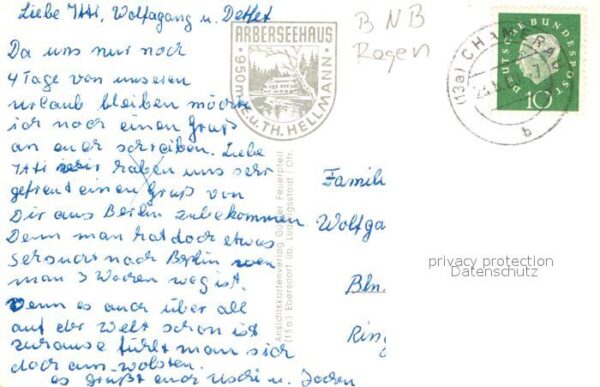 Liebe Itti, Wolfgang u. Detlef
Da uns nur noch
4 Tage von unseren
urlaub bleiben möchte
ich noch einen Gruß
an euch schreiben. Liebe
Itti wir haben uns sehr
gefreut einen Gruß von
Dir aus Berlin zubekommen
Denn man hat doch etwas
sehnsucht nach Berlin wen
man 3 Wochen weg ist.
Denn es auch über all
auf der Welt schon ist
zuhause fühlt man sich
doch am wolsten.
es grüßt euch Uschi u. Jochen
ARBERSEEHAUS
950m E.u.TH. HELLMANN
BNB
Regen
(13a) CHAMERAU
b
DEUTSCHE BUNDESPOST
10
Ansichtskartenverlag Günter Feuerpfeil
(13a) Ebersdorf üb. Ludwigsstadt Ofr.
Famili
Wolfga
Bln.
Ring
privacy protection
Datenschutz